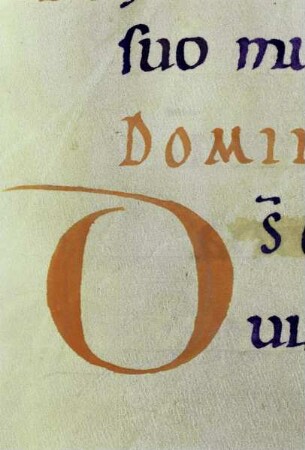 suo mu
DOMIN
DS̄
uı